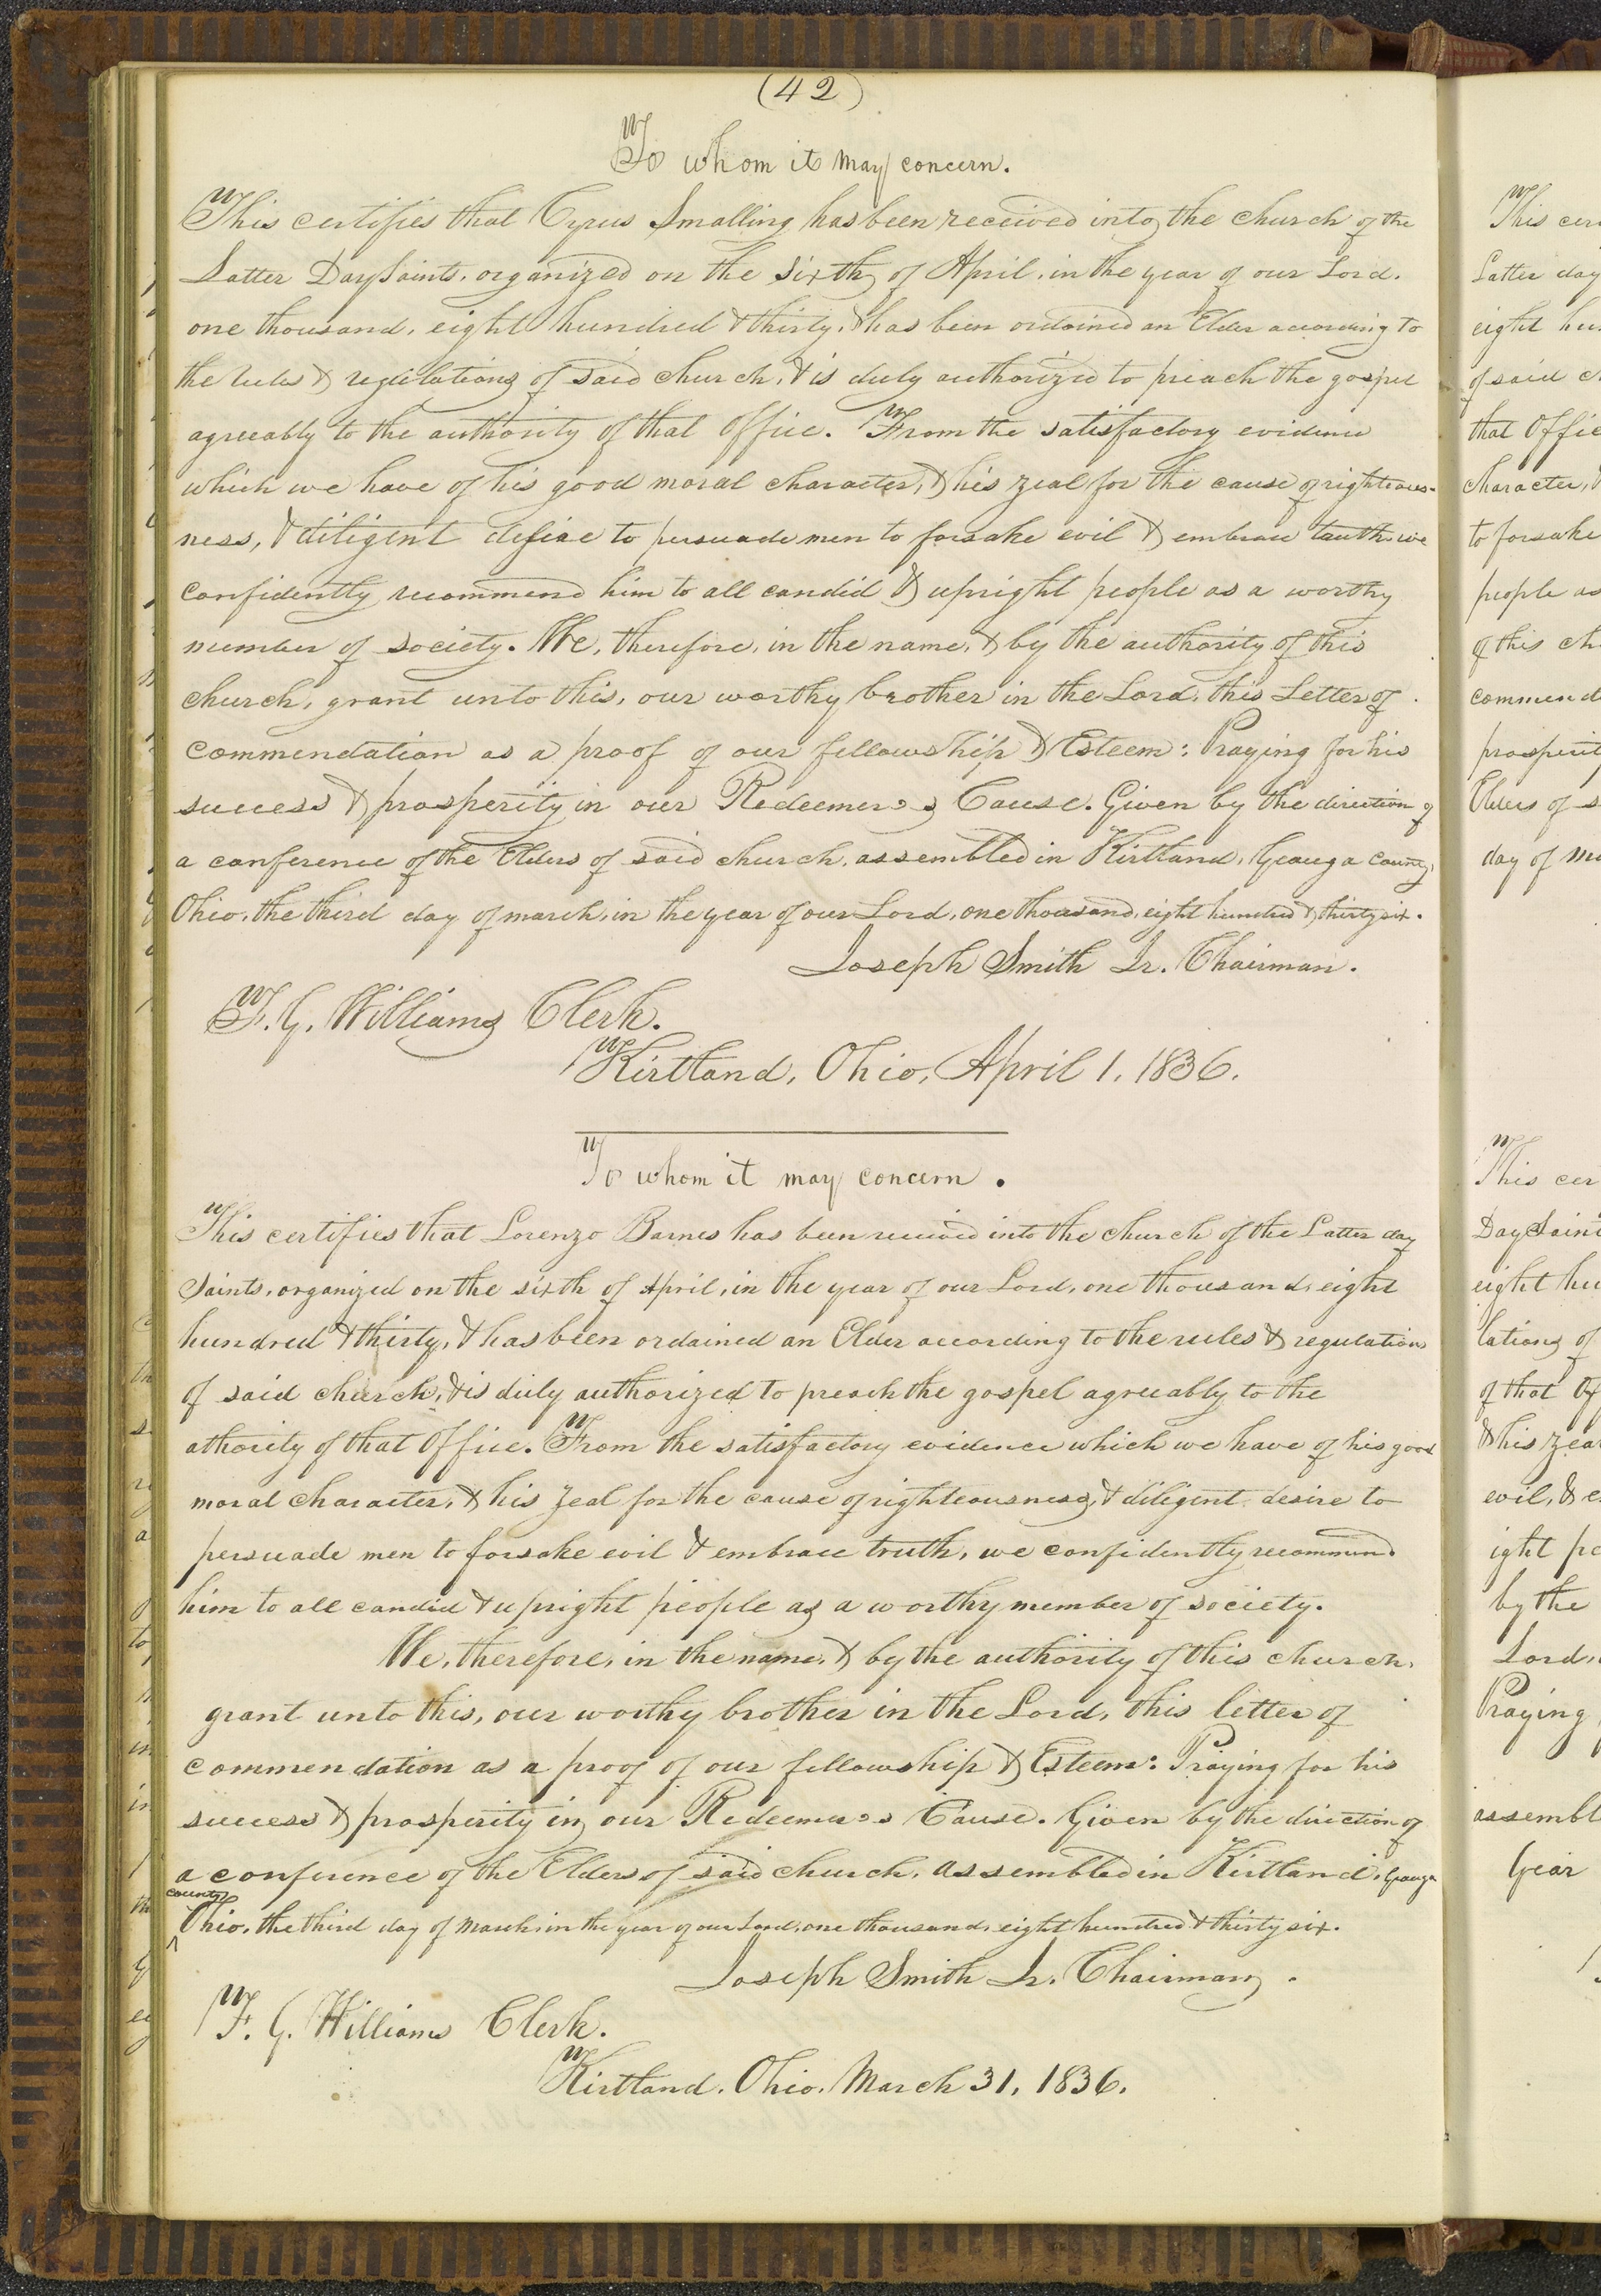 (42)
To whom it may concern.
This certifies that Cyrus Smalling has been received into the church of the
Latter Day Saints, organized on the sixth of April, in the year of our Lord.
one thousand, eight hundred & thirty, & has been ordained an Elder according to
the rules & regulations of said church, & is duly authorized to preach the gospel
agreeably to the authority of that office. From the satisfactory evidence
which we have of his good moral character, & his zeal for the cause of righteous-
ness, & diligent desire to persuade men to forsake evil & embrace truth, we
confidently recommend him to all candid & upright people as a worthy
member of society. We, therefore, in the name, & by the authority of this
church, grant unto this, our worthy brother in the Lord, this Letter of
commendation as a proof of our fellowship & Esteem: Praying for his
success & prosperity in our Redeemer's Cause. Given by the direction of
a conference of the Elders of said church, assembled in Kirtland, Geauga County,
Ohio, the third day of march, in the year of our Lord, one thousand, eight hundred & thirty six.
Joseph Smith Jr. Chairman.
F. G. Williams Clerk.
Kirtland, Ohio, April 1, 1836.
To whom it may concern.
This certifies that Lorenzo Barnes has been received into the church of the Latter day
Saints, organized on the sixth of April, in the year of our Lord, one thousand, eight
hundred & thirty, & has been ordained an Elder according to the rules & regulations
of said church, & is duly authorized to preach the gospel agreeably to the
athority of that Office. From the satisfactory evidence which we have of his good
moral character, & his zeal for the cause of righteousness, & diligent desire to
persuade men to forsake evil & embrace truth, we confidently recommend
him to all candid & upright people as a worthy member of society.
We, therefore, in the name, & by the authority of this church,
grant unto this, our worthy brother in the Lord, this letter of
commendation as a proof of our fellowship & Esteem: Praying for his
success & prosperity in our Redeemer's Cause. Given by the direction of
a conference of the Elders of said church, assembled in Kirtland, Geauga
county
Ohio, the third day of March, in the year of our Lord, one thousand, eight hundred & thirty six.
Joseph Smith Jr. Chairman.
F. G. Williams Clerk.
Kirtland, Ohio, March 31, 1836.
This cer
Latter day
eight hu
of said c
that Offic
character, &
to forsake
people as
of this ch
commend
prosperit
Elders of s
day of Ma
This cer
Day Saint
eight hu
lations of
of that Of
& his zea
evil, & e
ight pe
by the
Lord,
Praying
assembl
Year